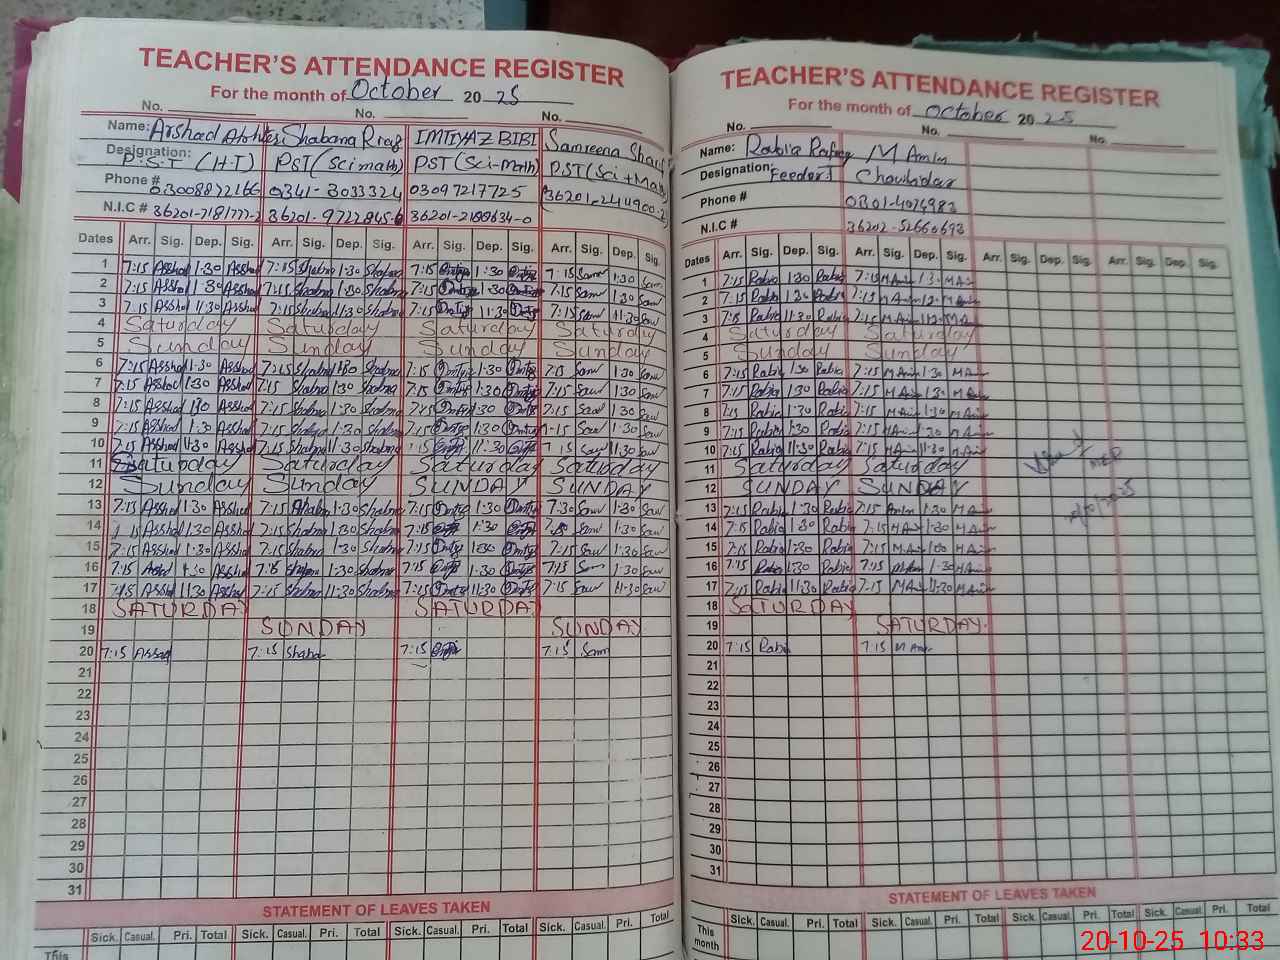 TEACHER'S ATTENDANCE REGISTER
For the month of October 20 25
No. No. No.
Name: Arshad Shabana Riaz IMTIYAZ BIBI Samreena
Designation: P.S.T (H.T) PST (Sci math) PST (Sci-Math) PST (Sci + Math)
Phone # 03008872166 0341-3033324 03097217725
N.I.C # 36201-7181777-2 36201-9722845-6 36201-2180634-0
Dates Arr. Sig. Dep. Sig. Arr. Sig. Dep. Sig. Arr. Sig. Dep. Sig. Arr. Sig. Dep. Sig.
1 7:15 Asshad 1:30 Asshad 7:15 Shabna 1:30 Shabna 7:15 1:30 7:15 Sam 1:30 Sam
2 7:15 Asshad 1:30 Asshad 7:15 Shabna 1:30 Shabna 7:15 1:30 7:15 Saw 1:30 Saw
3 7:15 Asshad 11:30 Asshad 7:15 Shabna 11:30 Shabna 7:15 11:30 7:15 Saw 11:30 Saw
4 Saturday Saturday Saturday Saturday
5 Sunday Sunday Sunday Sunday
6 7:15 Asshad 1:30 Asshad 7:15 Shabna 1:30 Shabna 7:15 1:30 7:15 Saw 1:30 Saw
7 7:15 Asshad 1:30 Asshad 7:15 Shabna 1:30 Shabna 7:15 1:30 7:15 Saw 1:30 Saw
8 7:15 Asshad 1:30 Asshad 7:15 Shabna 1:30 Shabna 7:15 1:30 7:15 Saw 1:30 Saw
9 7:15 Asshad 1:30 Asshad 7:15 Shabna 1:30 Shabna 7:15 1:30 7:15 Saw 1:30 Saw
10 7:15 Asshad 11:30 Asshad 7:15 Shabna 11:30 Shabna 7:15 11:30 7:15 Saw 11:30 Saw
11 Saturday Saturday Saturday Saturday
12 Sunday Sunday SUNDAY SUNDAY
13 7:15 Asshad 1:30 Asshad 7:15 Shabna 1:30 Shabna 7:15 1:30 7:30 Saw 1:30 Saw
14 Asshad 1:30 Asshad 7:15 Shabna 1:30 Shabna 7:15 1:30 Saw 1:30 Saw
15 7:15 Asshad 1:30 Asshad 7:15 Shabna 1:30 Shabna 7:15 1:30 7:15 Saw 1:30 Saw
16 7:15 Asshad 1:30 Asshad 1:30 Shabna 7:15 1:30 7:15 1:30 Saw
17 7:15 Asshad 11:30 Asshad 7:15 Shabna 11:30 Shabna 7:15 11:30 7:15 Saw 11:30 Saw
18 SATURDAY SATURDAY
19 SUNDAY SUNDAY
20 7:15 7:15 Shabna 7:15 7:15 Sam
21
22
23
24
25
26
27
28
29
30
31
STATEMENT OF LEAVES TAKEN
Sick. Casual. Pri. Total Sick. Casual. Pri. Total Sick. Casual. Pri. Total Sick. Casual. Pri. Total
This
TEACHER'S ATTENDANCE REGISTER
For the month of October 20 25
No. No. No.
Name: Rabia M Amin
Designation: Chowkidar
Phone # 0301-4074983
N.I.C # 36202-5266069-3
Dates Arr. Sig. Dep. Sig. Arr. Sig. Dep. Sig. Arr. Sig. Dep. Sig. Arr. Sig. Dep. Sig.
1 7:15 Rabia 1:30 Rabia 7:15 M Amin 1:30 M Amin
2 7:15 Rabia 1:30 Rabia 7:15 M Amin M Amin
3 7:15 Rabia 11:30 Rabia 7:15 M Amin M Amin
4 Saturday Saturday
5 Sunday Sunday
6 7:15 Rabia 1:30 Rabia 7:15 M Amin 1:30 M Amin
7 7:15 Rabia 1:30 Rabia 7:15 M Amin 1:30 M Amin
8 7:15 Rabia 1:30 Rabia 7:15 M Amin 1:30 M Amin
9 7:15 Rabia 1:30 Rabia 7:15 M Amin 1:30 M Amin
10 7:15 Rabia 11:30 Rabia 7:15 M Amin 11:30 M Amin
11 Saturday Saturday
12 SUNDAY SUNDAY
13 7:15 Rabia 1:30 Rabia 7:15 Amin 1:30 M Amin
14 7:15 Rabia 1:30 Rabia 7:15 M Amin 1:30 M Amin
15 7:15 Rabia 1:30 Rabia 7:15 M Amin M Amin
16 7:15 Rabia 1:30 Rabia 7:15 M Amin 1:30 M Amin
17 7:15 Rabia 11:30 Rabia 7:15 M Amin 11:30 M Amin
18 SATURDAY
19 SATURDAY.
20 7:15 Rabia 7:15 M Amin
21
22
23
24
25
26
27
28
29
30
31
STATEMENT OF LEAVES TAKEN
Sick. Casual. Pri. Total Sick. Casual. Pri. Total Sick. Casual. Pri. Total Sick. Casual. Pri. Total
This month
20-10-25 10:33